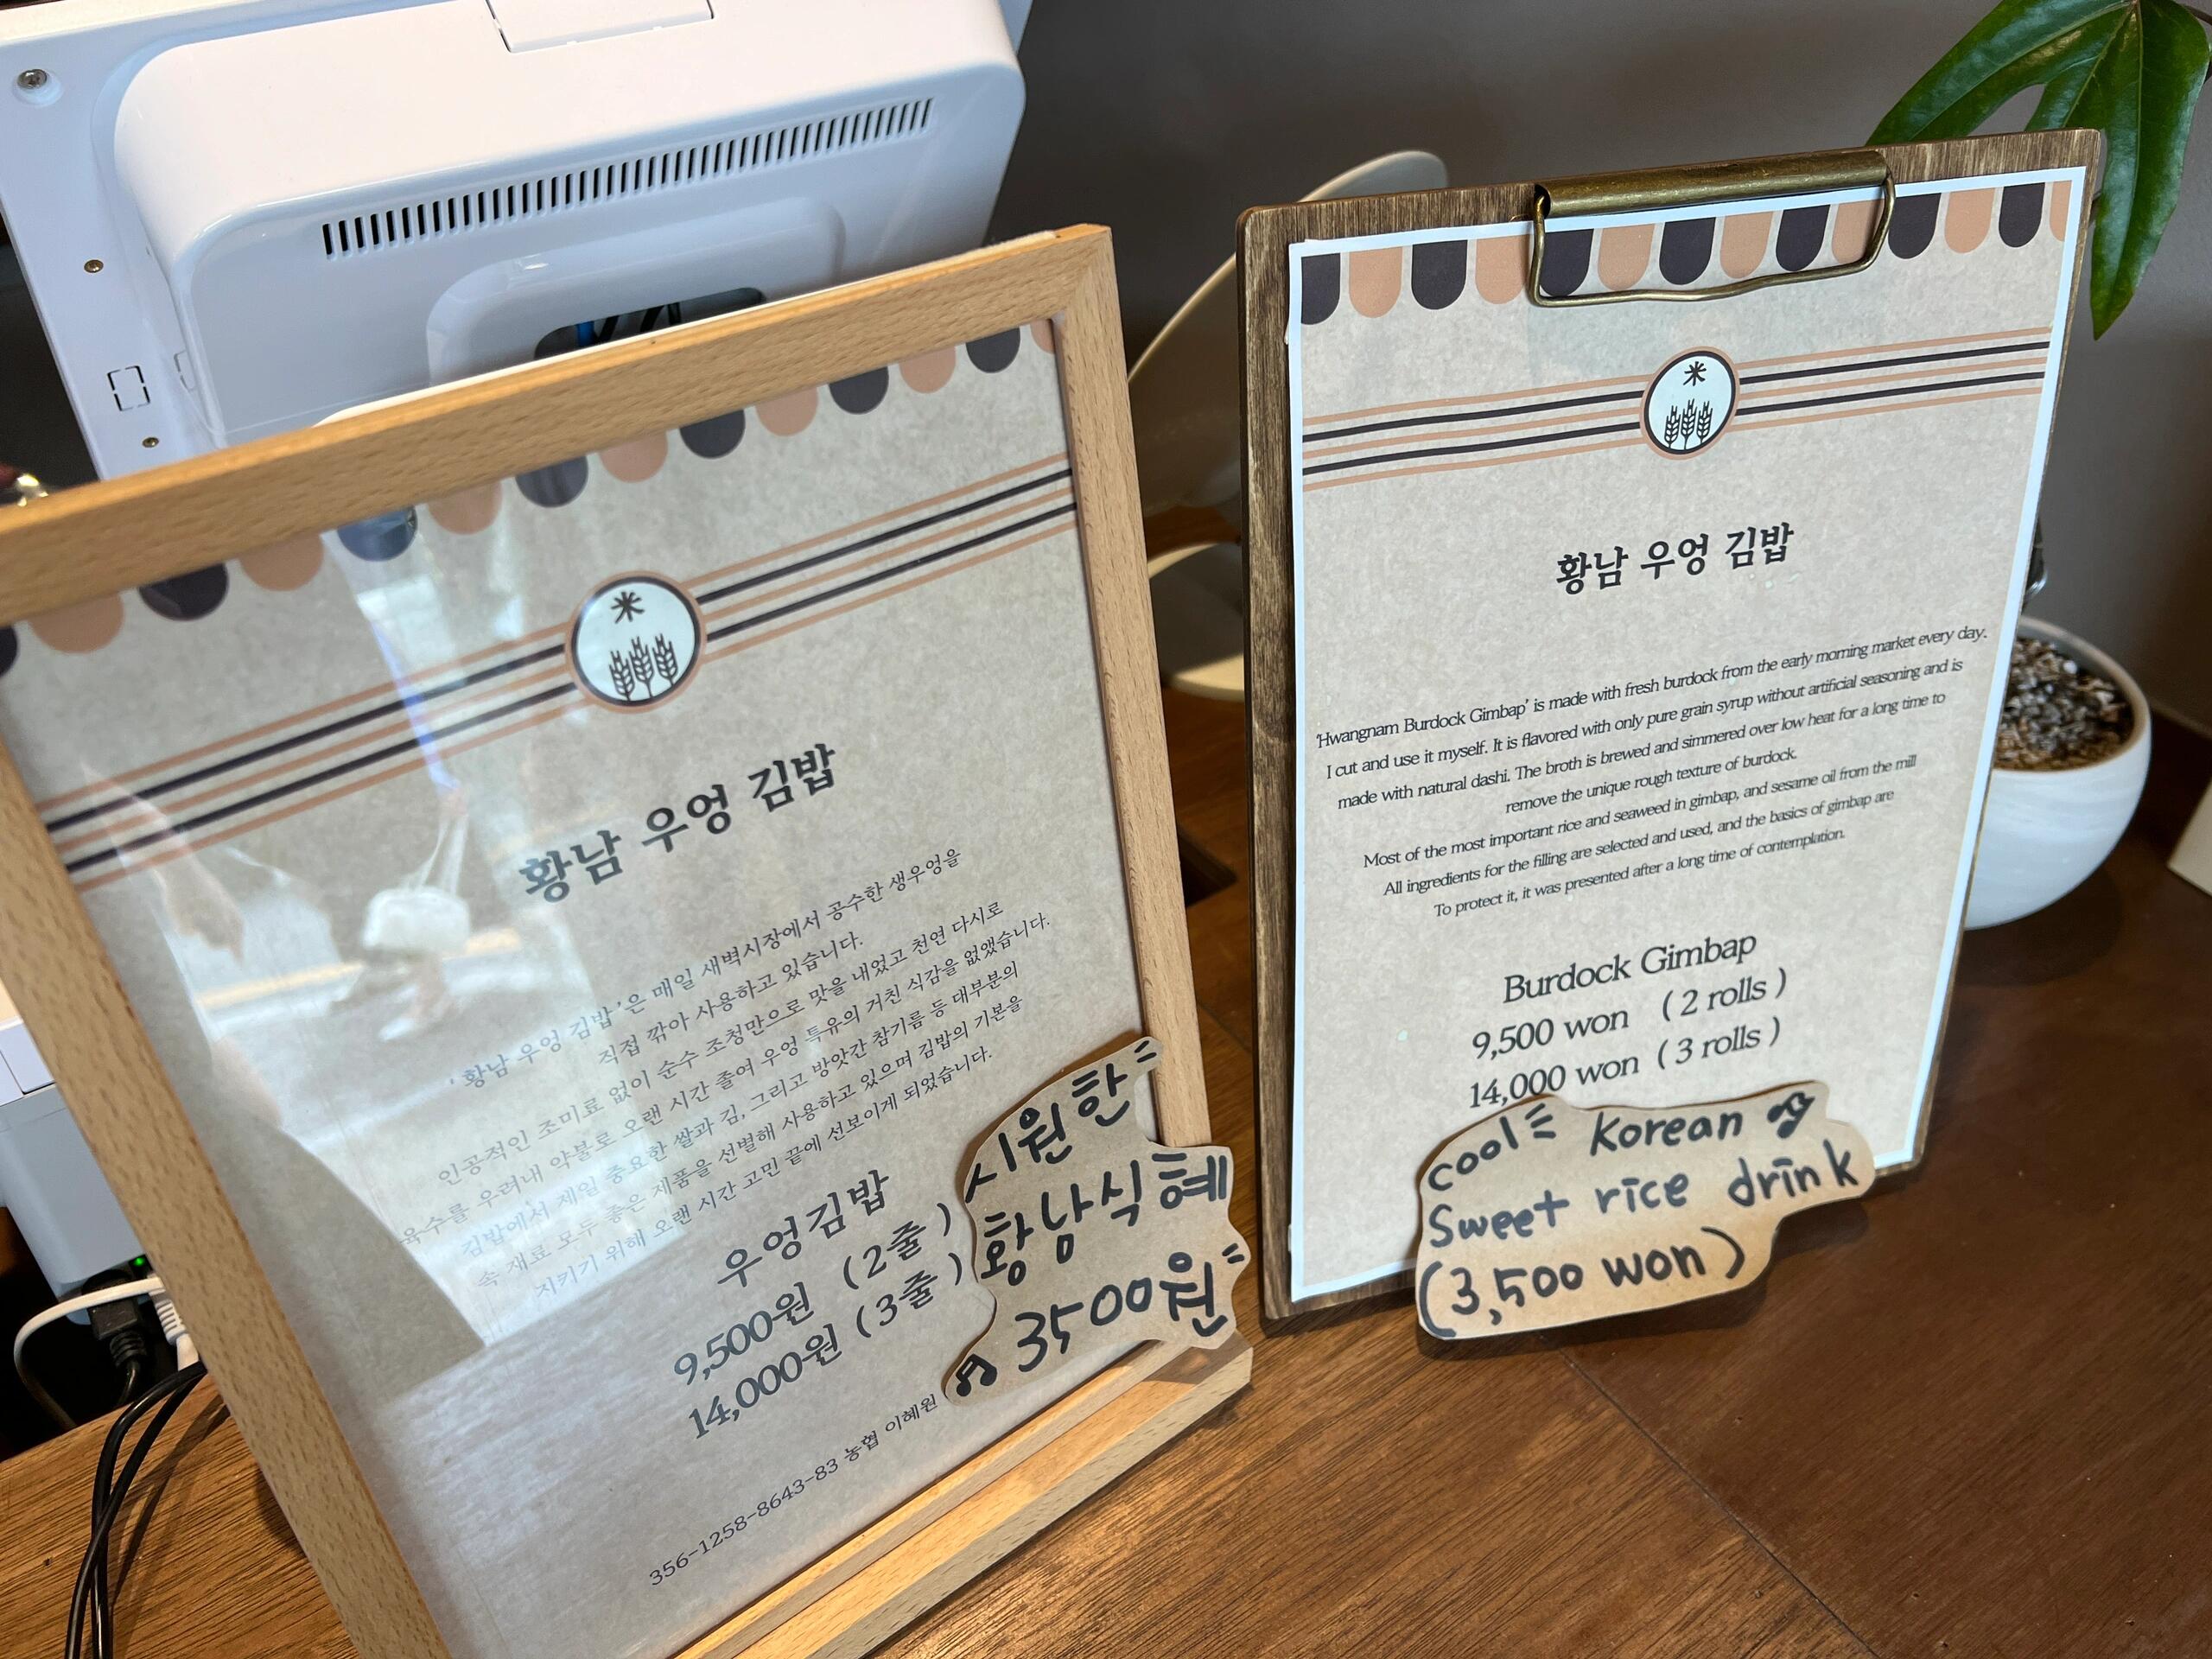 米
황남 우엉 김밥
'황남 우엉 김밥'은 매일 새벽시장에서 공수한 생우엉을
직접 깎아 사용하고 있습니다.
인공적인 조미료 없이 순수 조청만으로 맛을 내었고 천연 다시로
육수를 우려내 약불로 오랜 시간 졸여 우엉 특유의 거친 식감을 없앴습니다.
김밥에서 제일 중요한 쌀과 김, 그리고 방앗간 참기름 등 대부분의
속 재료 모두 좋은 제품을 선별해 사용하고 있으며 김밥의 기본을
지키기 위해 오랜 시간 고민 끝에 선보이게 되었습니다.
우엉김밥
9,500원 (2줄)
14,000원 (3줄)
356-1258-8643-83 농협 이혜원
시원한
황남식혜
3500원
米
황남 우엉 김밥
'Hwangnam Burdock Gimbap' is made with fresh burdock from the early morning market every day.
I cut and use it myself. It is flavored with only pure grain syrup without artificial seasoning and is
made with natural dashi. The broth is brewed and simmered over low heat for a long time to
remove the unique rough texture of burdock.
Most of the most important rice and seaweed in gimbap, and sesame oil from the mill
All ingredients for the filling are selected and used, and the basics of gimbap are
To protect it, it was presented after a long time of contemplation.
Burdock Gimbap
9,500 won ( 2 rolls )
14,000 won ( 3 rolls )
cool Korean
Sweet rice drink
(3,500 won)